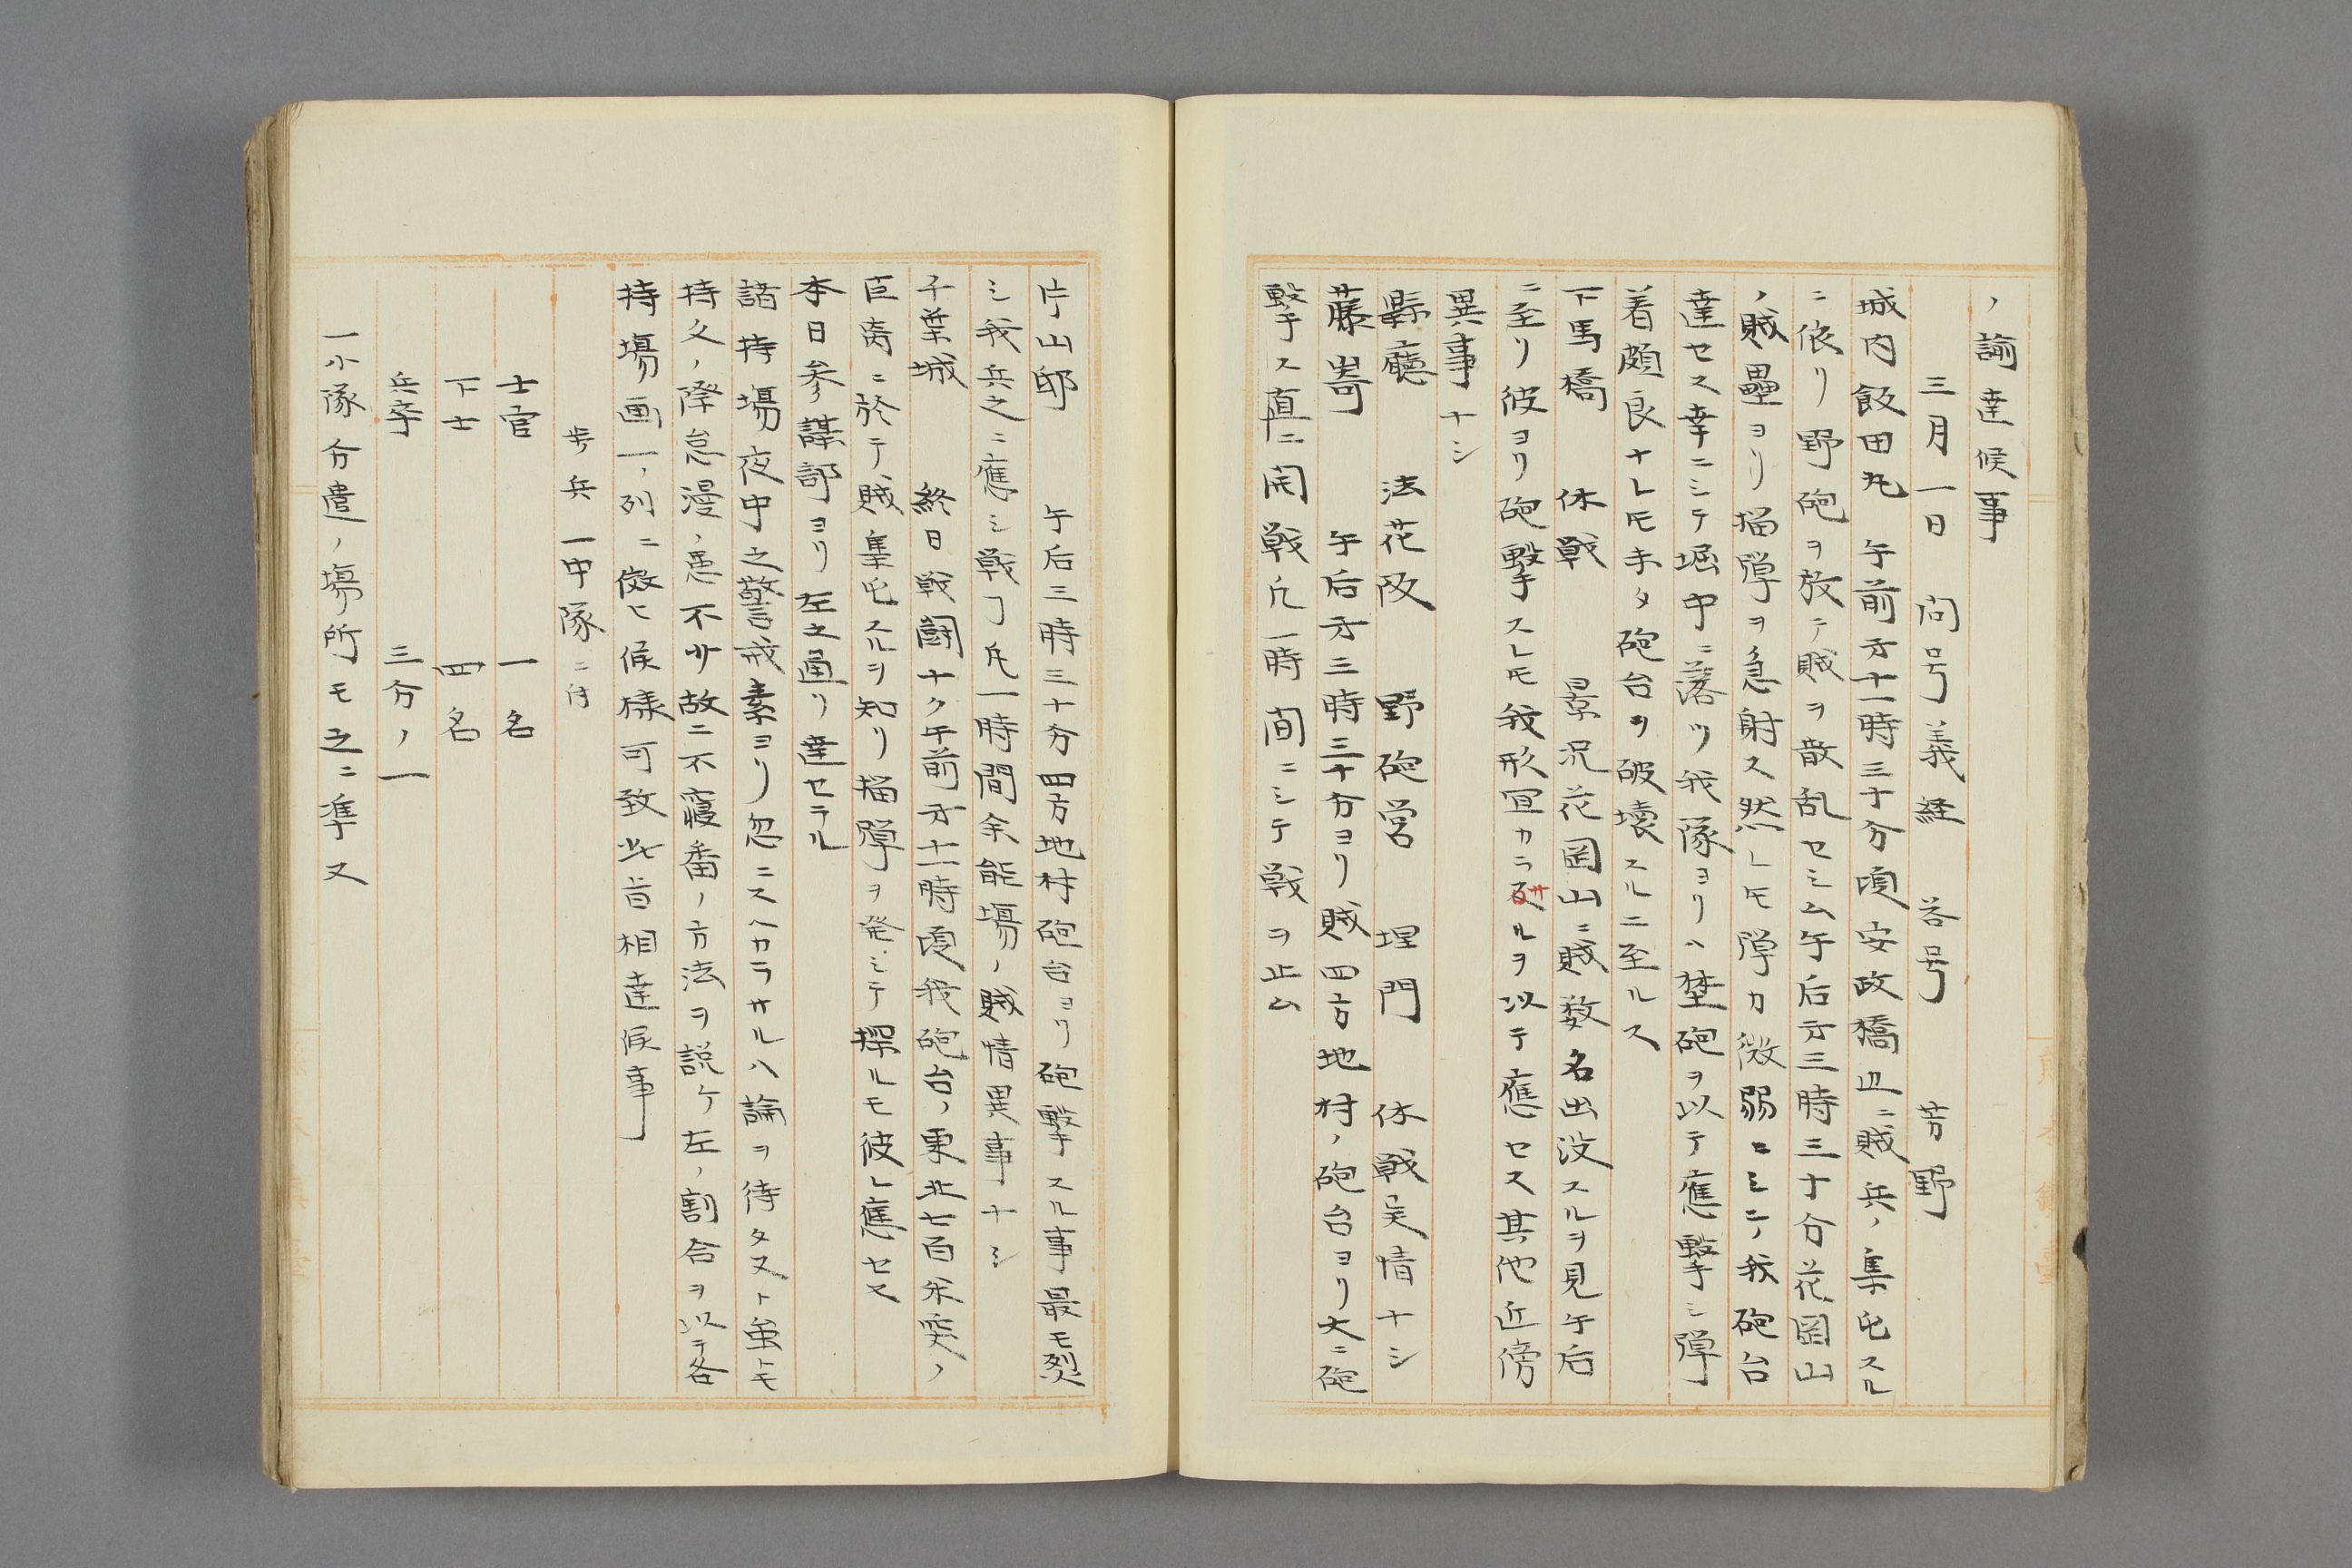 ノ諭達候事
三月一日 問号 義経 答号 芳野
城内飯田丸 午前才十一時三十分頃安政橋辺ニ賊兵ノ集屯スル
ニ依リ野砲ヲ放テ賊ヲ散乱セシム午后才三時三十分花岡山
ノ賊塁ヨリ榴弾ヲ急射ス然レ𪜈弾力微弱ニシテ我砲台
達セス幸ニシテ堀中ニ落ツ我隊ヨリハ埜砲ヲ以テ應撃シ弾
着頗良ナレ𪜈未タ砲台ヲ破壊スルニ至ルス
下馬橋 休戦 景况花岡山ニ賊数名出没スルヲ見午后
ニ至リ彼ヨリ砲撃スレ𪜈我形宜カラサルヲ以テ應セス其他近傍
異事ナシ
縣廳 法花阪 野砲営 埋門 休戦異情ナシ
藤嵜 午后才三時三十分ヨリ賊四方地村ノ砲台ヨリ大ニ砲
撃ス直ニ開戦凡一時間ニシテ戦ヲ止ム
片山邸 午后三時三十分四方地村砲台ヨリ砲撃スル事最モ烈
シ我兵之ニ應シ戦フ凡一時間余能場ノ賊情異事ナシ
千葉城 終日戦闘ナク午前才十一時頃我砲台ノ東北七百米突ノ
巨离ニ於テ賊集屯スルヲ知リ榴弾ヲ発シテ探ルモ彼レ應セス
本日参謀部ヨリ左之通リ達セラル
諸持場夜中之警戒素ヨリ忽ニスヘカラサルハ論ヲ待タスト虽𪜈
持久ノ際怠漫ノ患不少故ニ不寝番ノ方法ヲ説ケ左ノ割合ヲ以テ各
持場画一ノ列ニ倣ヒ候様可致此旨相達候事
歩兵一中隊ニ付
士官 一名
下士 四名
兵卒 三分ノ一
一小隊分遣ノ場所モ之ニ準ス